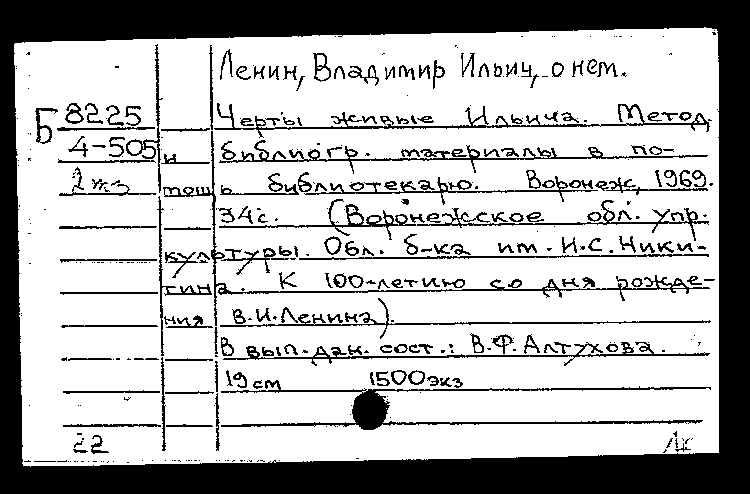 Ленин, Владимир Ильич, о нем.
Б 8225 Черты живые Ильича. Метод.
4-505 и библиогр. материалы в по-
2 жз мощь библиотекарю. Воронеж, 1969.
34с. (Воронежское обл. упр.
культуры. Обл. б-ка им. И.С. Ники-
тина. К 100-летию со дня рожде-
ния В.И.Ленина).
В вып. дан. сост.: В.Ф.Алтухова.
19 см 1500 экз
22